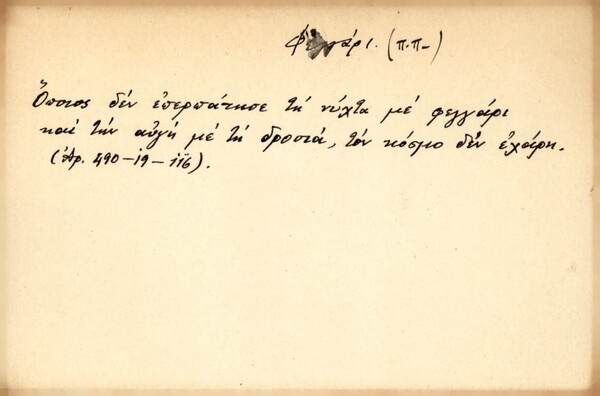 Φεγγάρι. (π.π.)
Ὅποιος δέν ἐπερπάτησε τή νύχτα μέ φεγγάρι
καί τήν αὐγή μέ τή δροσιά, τόν κόσμο δέν ἐχάρη.
(Ἀρ. 490-19-116).